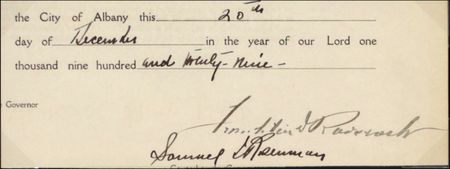 the City of Albany this 20th
day of December in the year of our Lord one
thousand nine hundred and twenty-nine-
e Governor
Franklin D Roosevelt
Samuel I Rosenman